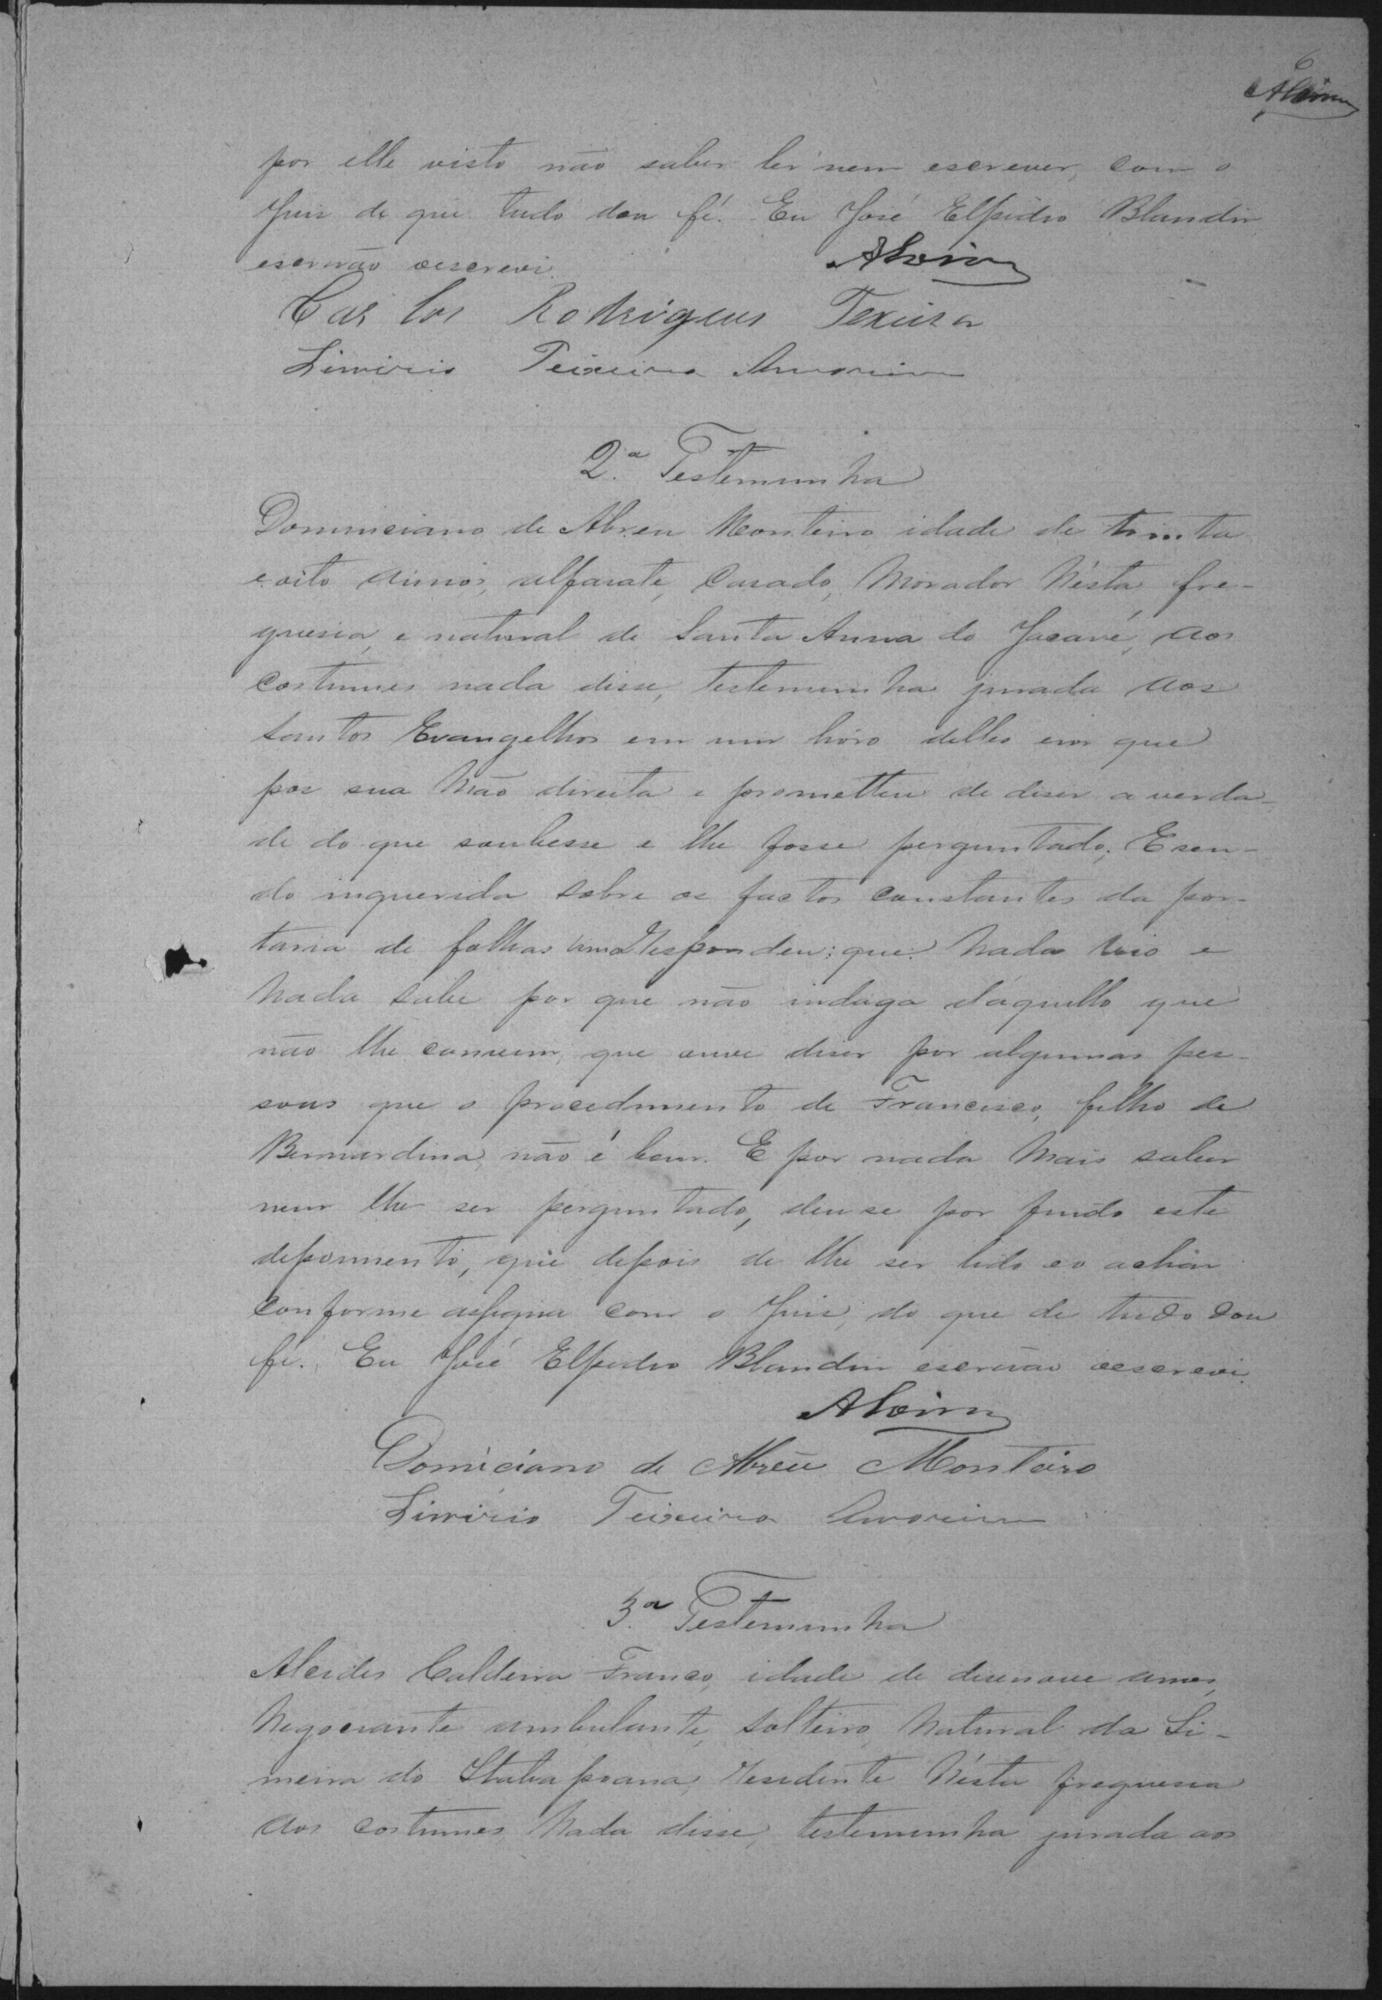 6
Alvim
por elle visto não saber ler nem escrever, com o
Juis de que tudo dou fé. Eu José Elpidio Blandin
escrivão oescrevi.
Alvim
Carlos Rodrigues Texeira
Limirio Teixeira Amorim
2.a Testemunha
Dominiciano de Abreu Monteiro idade de trinta
e oito annos, alfaiate, Casado, Morador Nésta fre-
guesia, e natural de Santa Anna do Jacaré, aos
costumes nada disse, testemunha jurada aos
Santos Evangelhos em um livro delles em que
pos sua Mão direita e prometteu de diser a verda-
de do que soubesse e lhe fosse perguntado; E sen-
do inquerida sobre os factos constantes da por-
taria de folhas uma Respondeu: que Nada vio e
Nada sabe por que não indaga d'aquillo que
não lhe convem, que ouve diser por algumas pes-
soas que o procedimento de Francisco, filho de
Bernardina, não é bom. E por nada Mais saber
nem lhe ser perguntado, deu se por findo este
depoimento, que depois de lhe ser lido eo achar
conforme assigna com o Juis, do que de tudo dou
fé. Eu José Elpidio Blandin escrivão oescrevi.
Alvim
Domiciano de Abreu Monteiro
Limirio Teixeira Amorim
3.a Testemunha
Alcides Caldeira Franco, idade de desenove annos,
Negociante ambulante, Solteiro, Natural da Li-
meira do Itabapoana, residente Nésta freguesia
aos costumes Nada disse, testemunha jurada aos